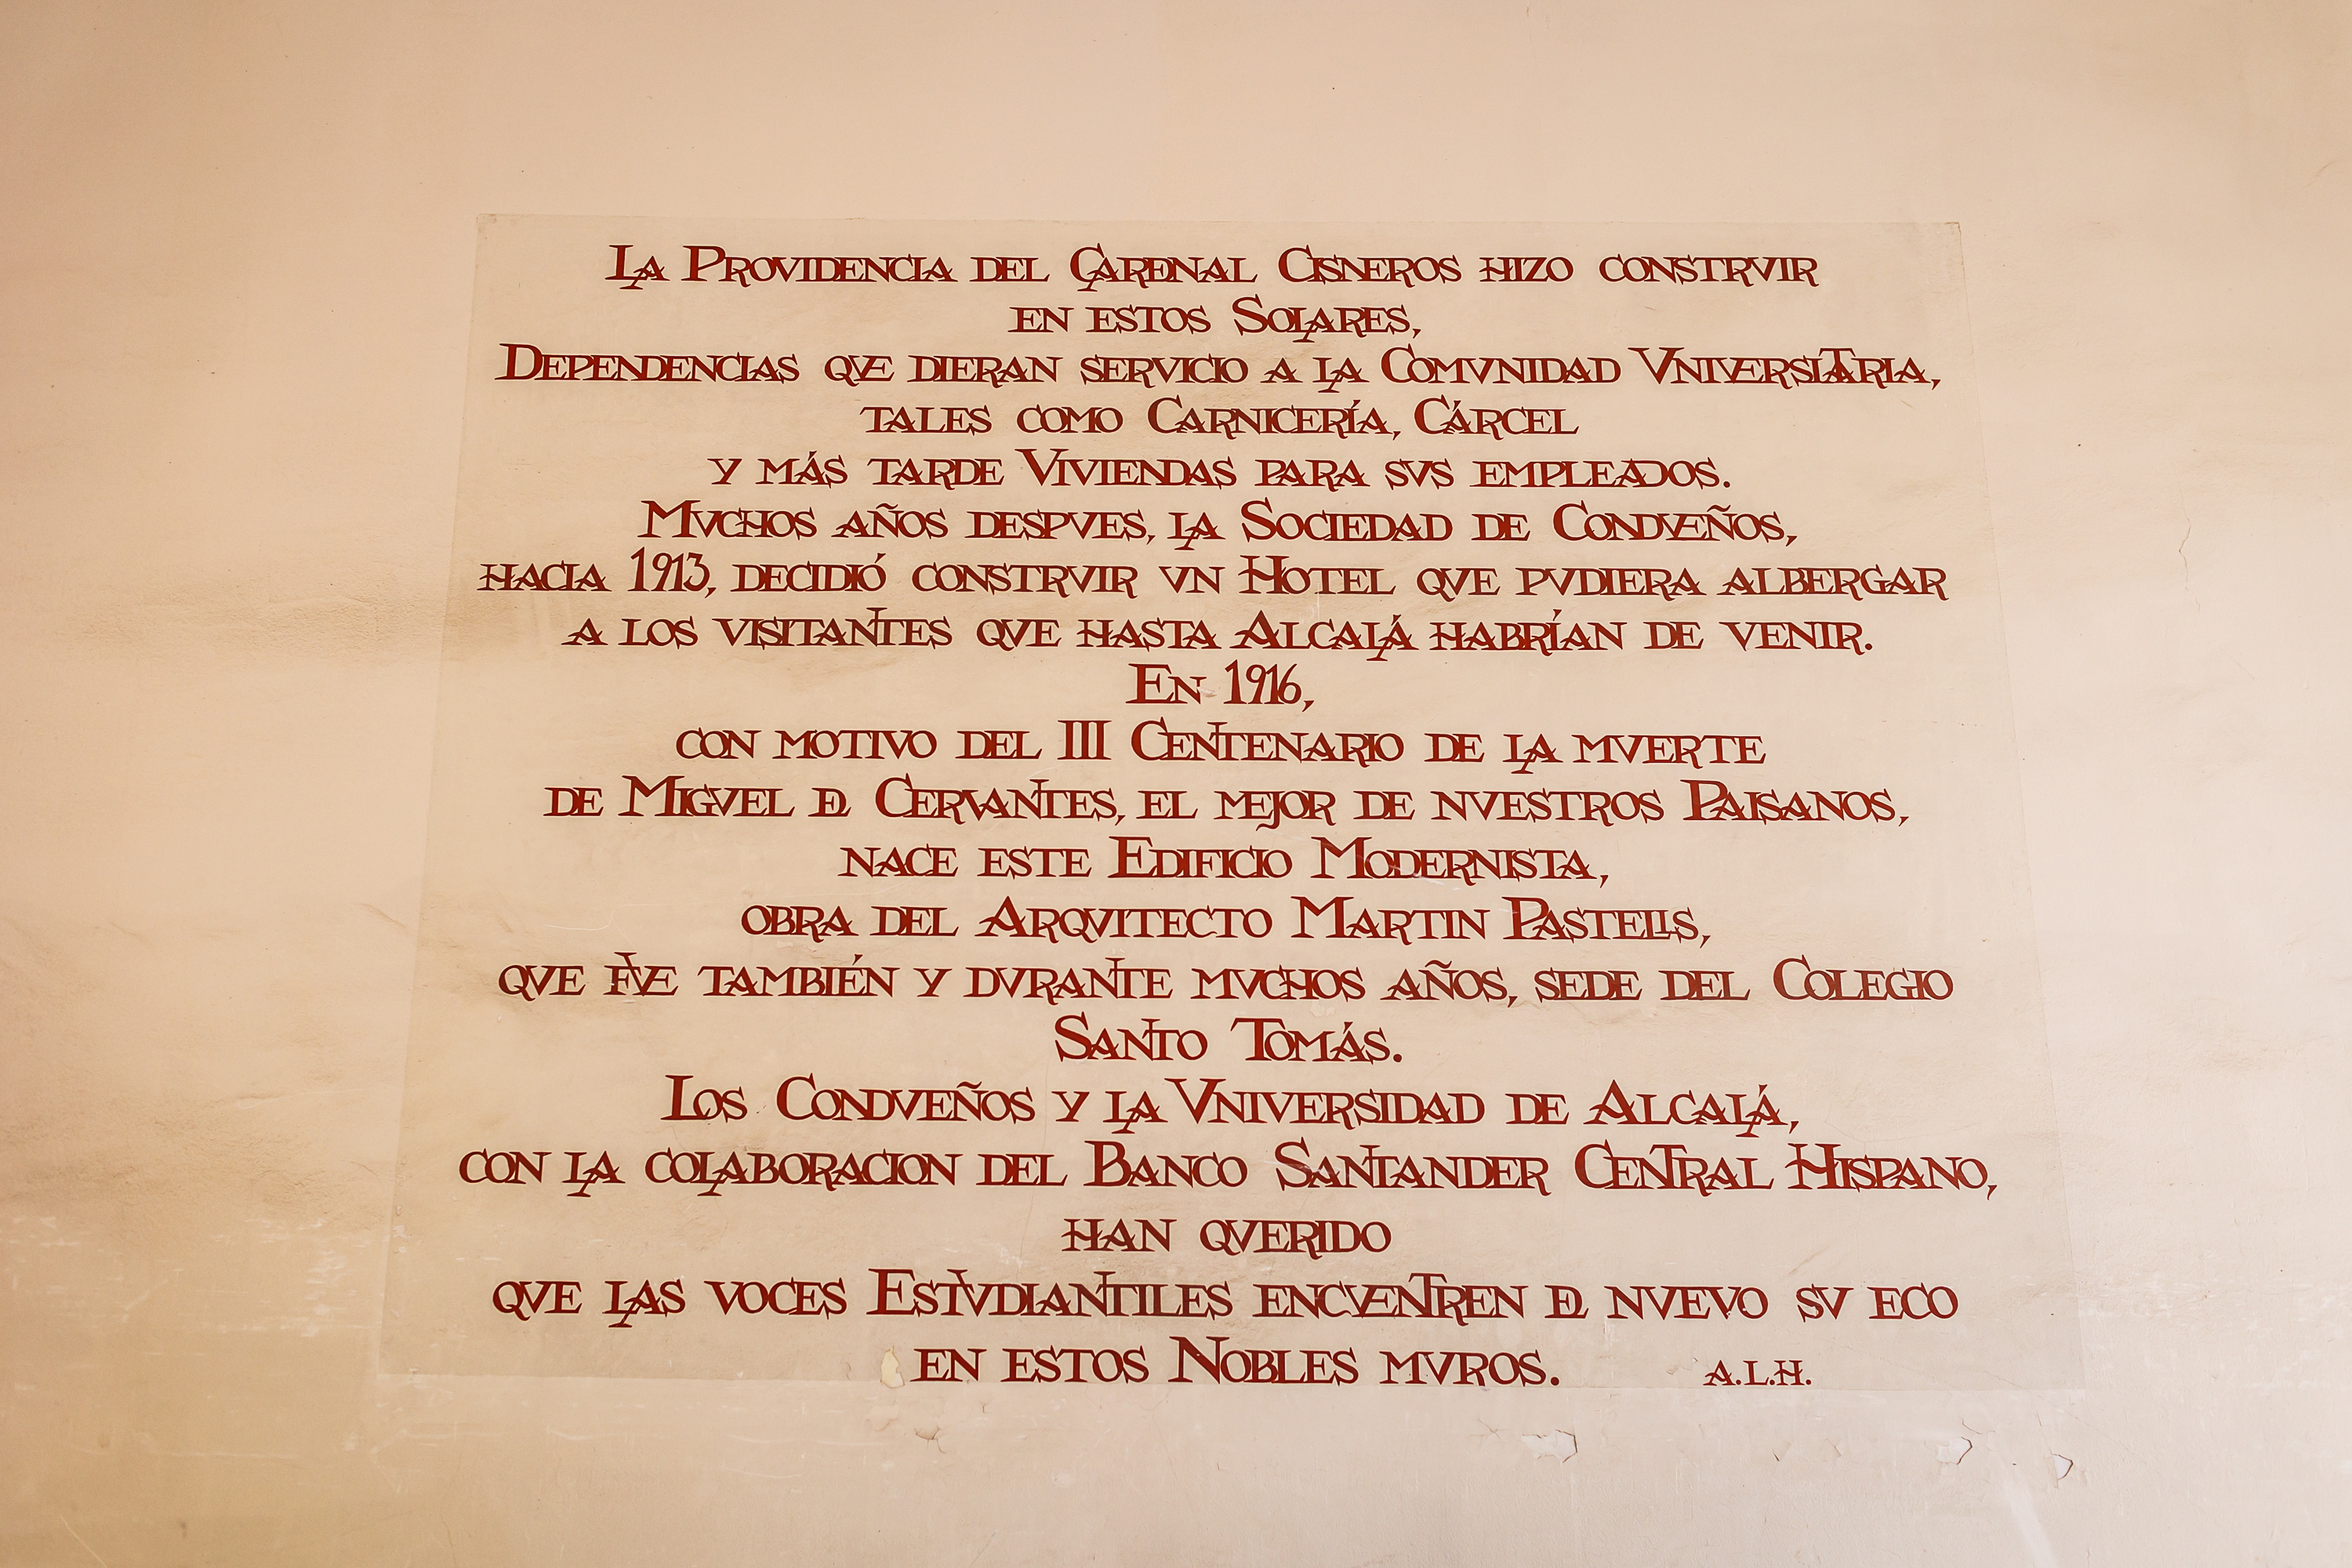 La Providencia del Cardenal Cisneros hizo constrvir
en estos Solares,
Dependencias qve dieran servicio a la Comvnidad Vniversitaria,
tales como Carnicería, Cárcel
y más tarde Viviendas para svs empleados.
Mvchos años despves, la Sociedad de Condveños,
hacia 1913, decidió constrvir vn Hotel qve pvdiera albergar
a los visitantes qve hasta Alcalá habrían de venir.
En 1916,
con motivo del III Centenario de la mverte
de Migvel de Cervantes, el mejor de nvestros Paisanos,
nace este Edificio Modernista,
obra del Arqvitecto Martin Pastells,
qve fve también y dvrante mvchos años, sede del Colegio
Santo Tomás.
Los Condveños y la Vniversidad de Alcalá,
con la colaboracion del Banco Santander Central Hispano,
han qverido
qve las voces Estvdiantiles encventren de nvevo sv eco
en estos Nobles mvros. A.L.H.